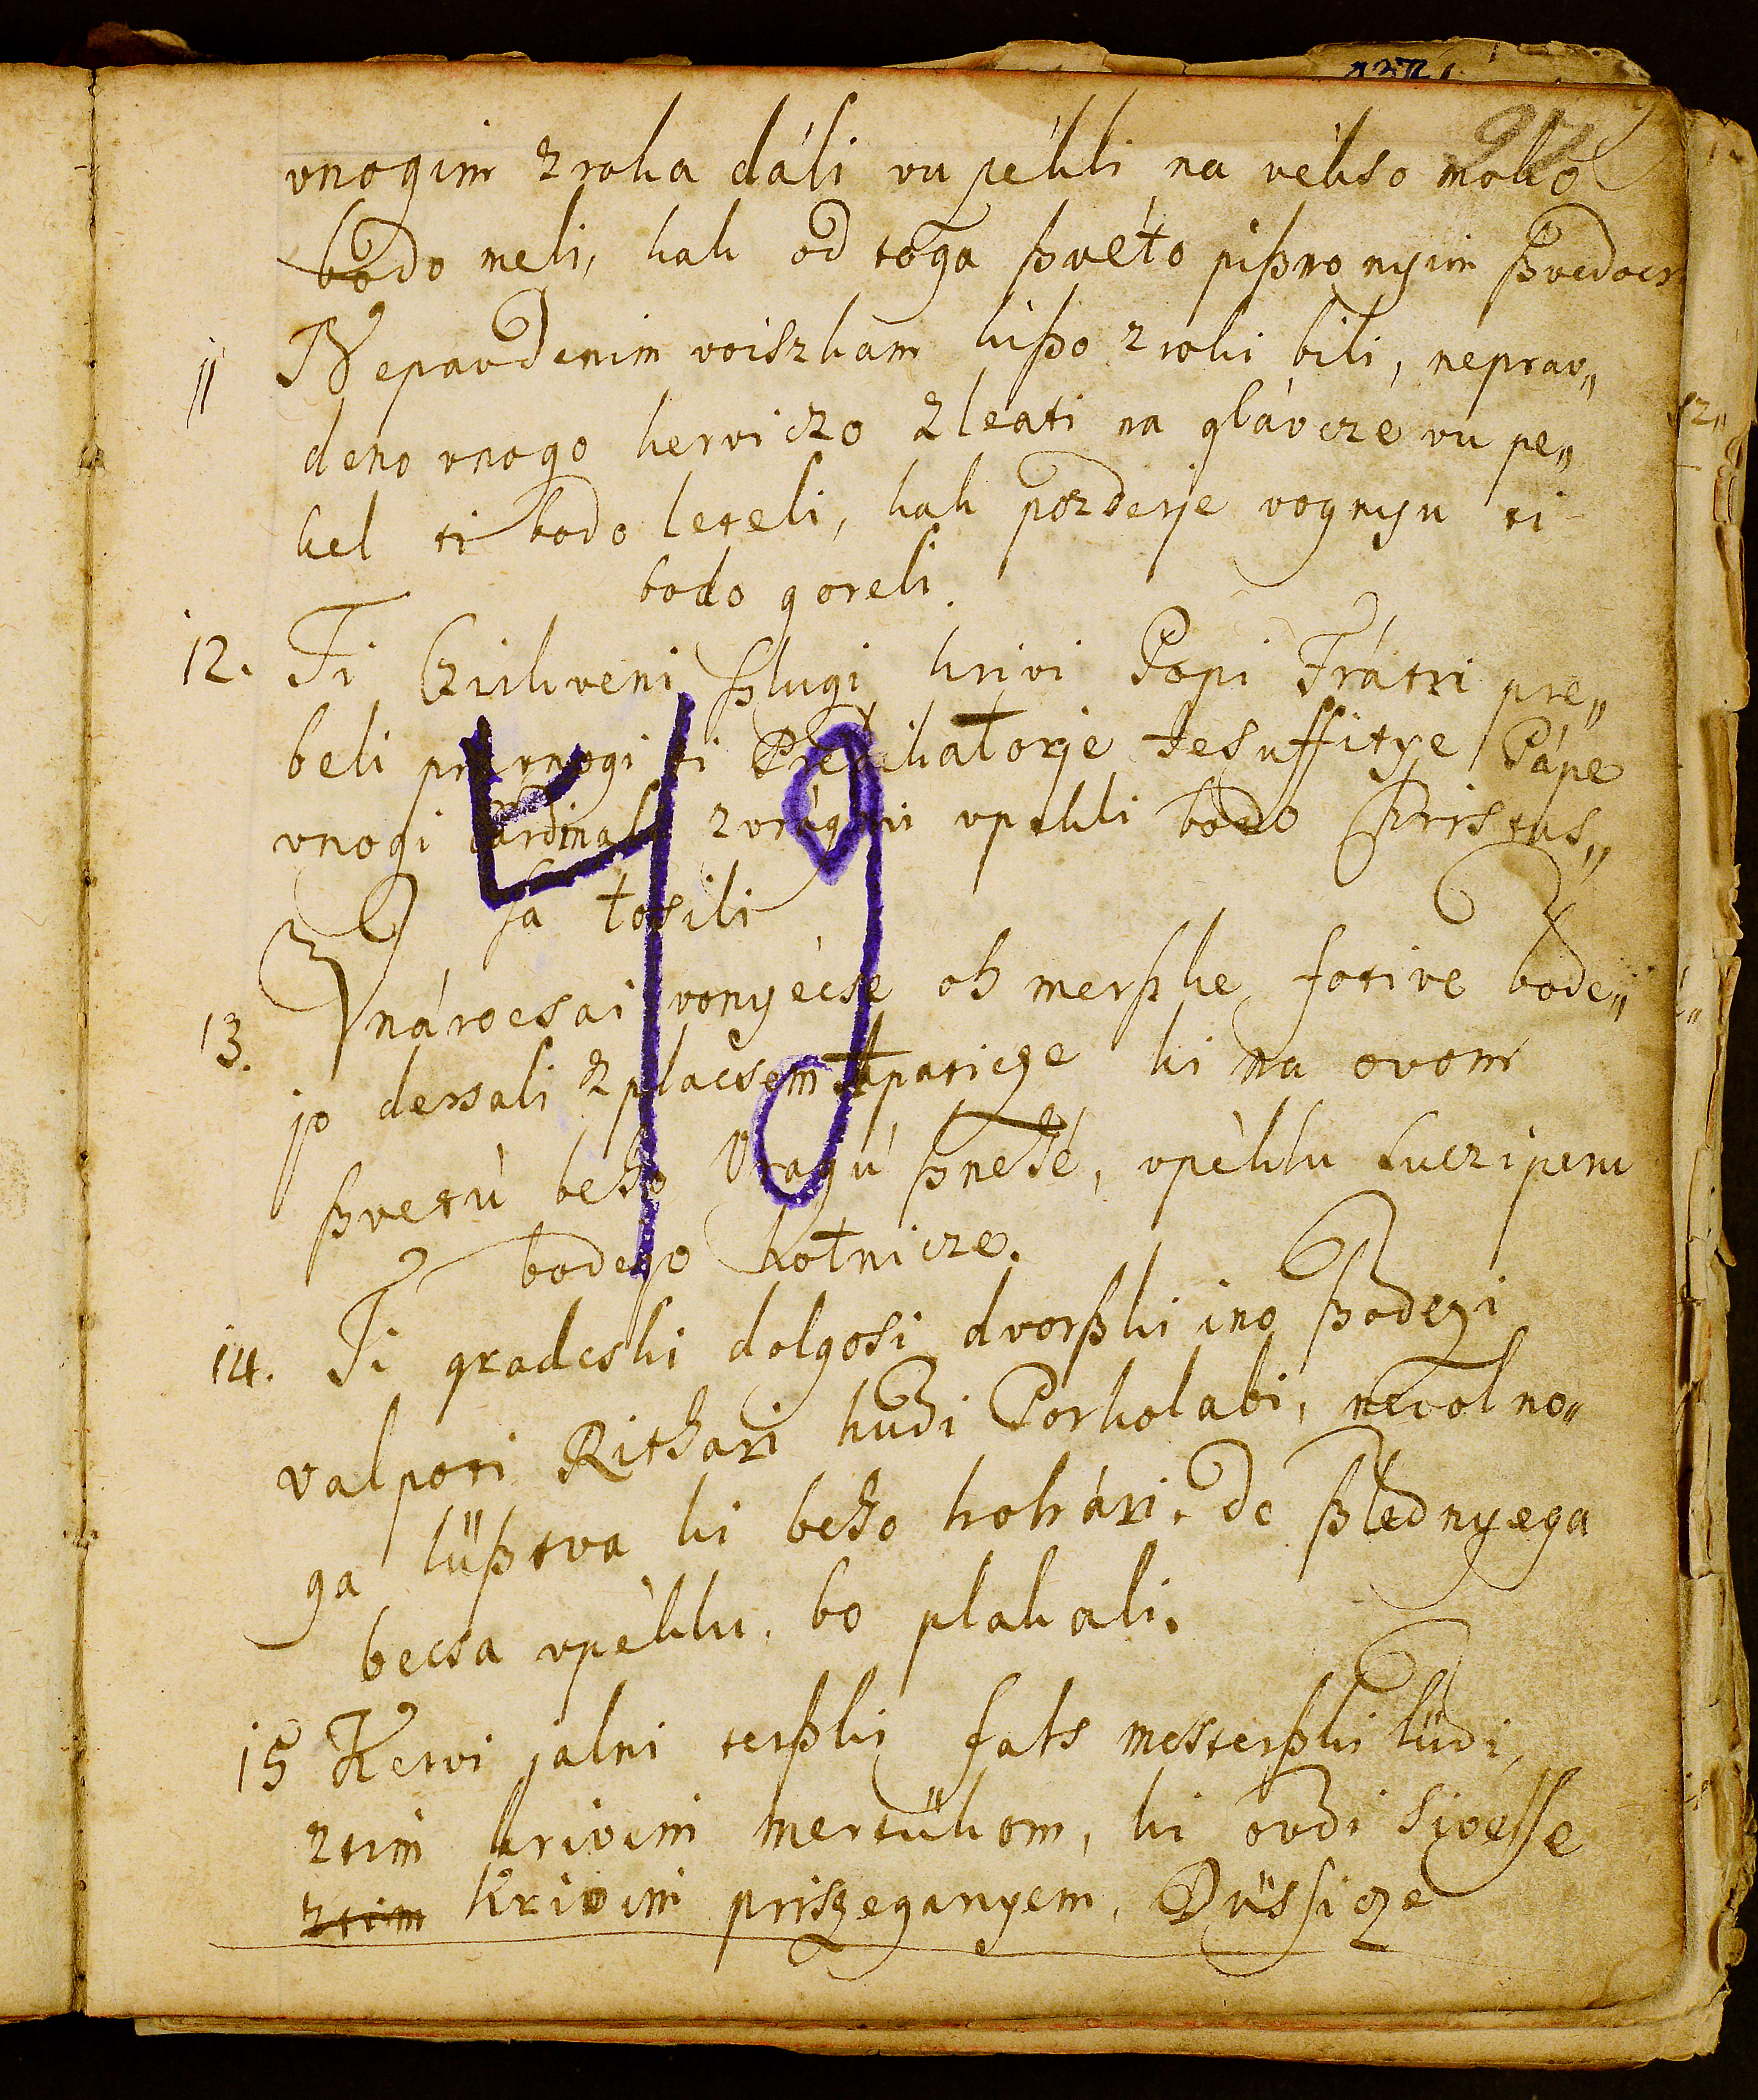 vnogim zroka dáli vu pékli na vékso moko
bodo meli, kak od toga ßveto pißmo nyim ßvedocs
11 Nepravdenim voiszkam kißo zroki bili, neprav„
deno vnogo kerviczo zleati na glávcze vu pe„
kel ti bodo leteli, kak pozderje vognyu ti
bodo goreli.
12. Ti Czirkveni ßlugi krivi Popi Frátri pre„
beli vnogi ti Prédikatorje Jesuffitye Pápe
vnogi Cardinali vpekli bodo Kristus„
sa tosili
49
13. Ynárocsai vonyécse oh merßke fotive bode„
jo dersali zplácsem ki na ovom
ßvetú beho Vragú ßnehé, vpéklu Lucziperu
bodejo kotnicze.
14. Ti gradcski dolgosi dvorßki ino ßodczi
valpoti Rithari hudi Porkolabi, nevolno„
ga lüßtva ki beho hohári. de ßlednyega
becsa vpéklu. bo plakali.
15 Kervi jalni terßki fals mesterßki lüdi,
ztim krivim mertükom, ki ovdi siveſſe
ztim krivim priszeganyem, Düssicze